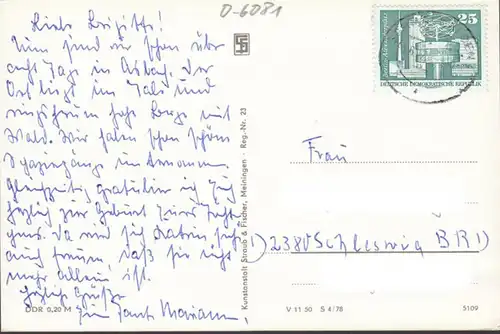 Liebe Brigitte!
Nun sind wir schon über
acht Tage in Asbach. Der
Ort liegt im Tal und
ringsherum hohe Berge mit
Wald. Wir haben schon schöne
Spaziergänge unternommen.
Gleichzeitig gratuliere ich Dich
herzlich zur Geburt Eurer Tochter
Da wird sich Katrin sehr
auch freuen, daß sie nicht
mehr allein ist.
Herzliche Grüße
Tante Mariann
0-6081
Kunstanstalt Straub & Fischer, Meiningen · Reg.-Nr. 23
DDR 0,20 M
Berlin-Alexanderplatz
25
DEUTSCHE DEMOKRATISCHE REPUBLIK
Frau
2380 Schleswig (BRD)
V 11 50 S 4/78
5109